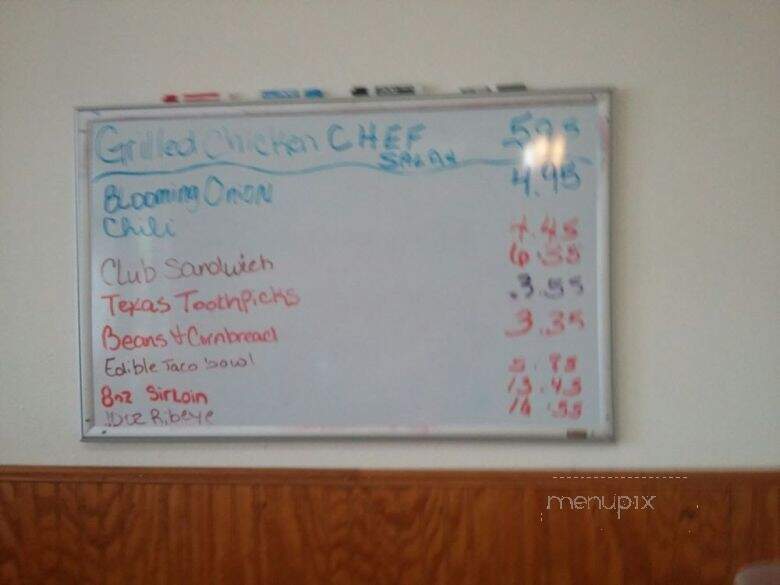 Grilled Chicken CHEF 5.95
SALAD
Blooming Onion 4.95
Chili
7.45
Club Sandwich 6.55
Texas Toothpicks 3.55
Beans & Cornbread 3.35
Edible Taco bowl 5.95
8oz Sirloin 13.45
10oz Ribeye 14.55
menupix